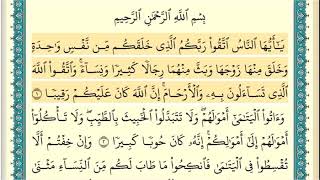 بِسْمِ ٱللَّهِ ٱلرَّحْمَٰنِ ٱلرَّحِيمِ
يَٰٓأَيُّهَا ٱلنَّاسُ ٱتَّقُوا۟ رَبَّكُمُ ٱلَّذِى خَلَقَكُم مِّن نَّفْسٍ وَٰحِدَةٍ
وَخَلَقَ مِنْهَا زَوْجَهَا وَبَثَّ مِنْهُمَا رِجَالًا كَثِيرًا وَنِسَآءً ۚ وَٱتَّقُوا۟ ٱللَّهَ
ٱلَّذِى تَسَآءَلُونَ بِهِۦ وَٱلْأَرْحَامَ ۚ إِنَّ ٱللَّهَ كَانَ عَلَيْكُمْ رَقِيبًا ١
وَءَاتُوا۟ ٱلْيَتَٰمَىٰٓ أَمْوَٰلَهُمْ ۖ وَلَا تَتَبَدَّلُوا۟ ٱلْخَبِيثَ بِٱلطَّيِّبِ ۖ وَلَا تَأْكُلُوٓا۟
أَمْوَٰلَهُمْ إِلَىٰٓ أَمْوَٰلِكُمْ ۚ إِنَّهُۥ كَانَ حُوبًا كَبِيرًا ٢ وَإِنْ خِفْتُمْ أَلَّا
تُقْسِطُوا۟ فِى ٱلْيَتَٰمَىٰ فَٱنكِحُوا۟ مَا طَابَ لَكُم مِّنَ ٱلنِّسَآءِ مَثْنَىٰ